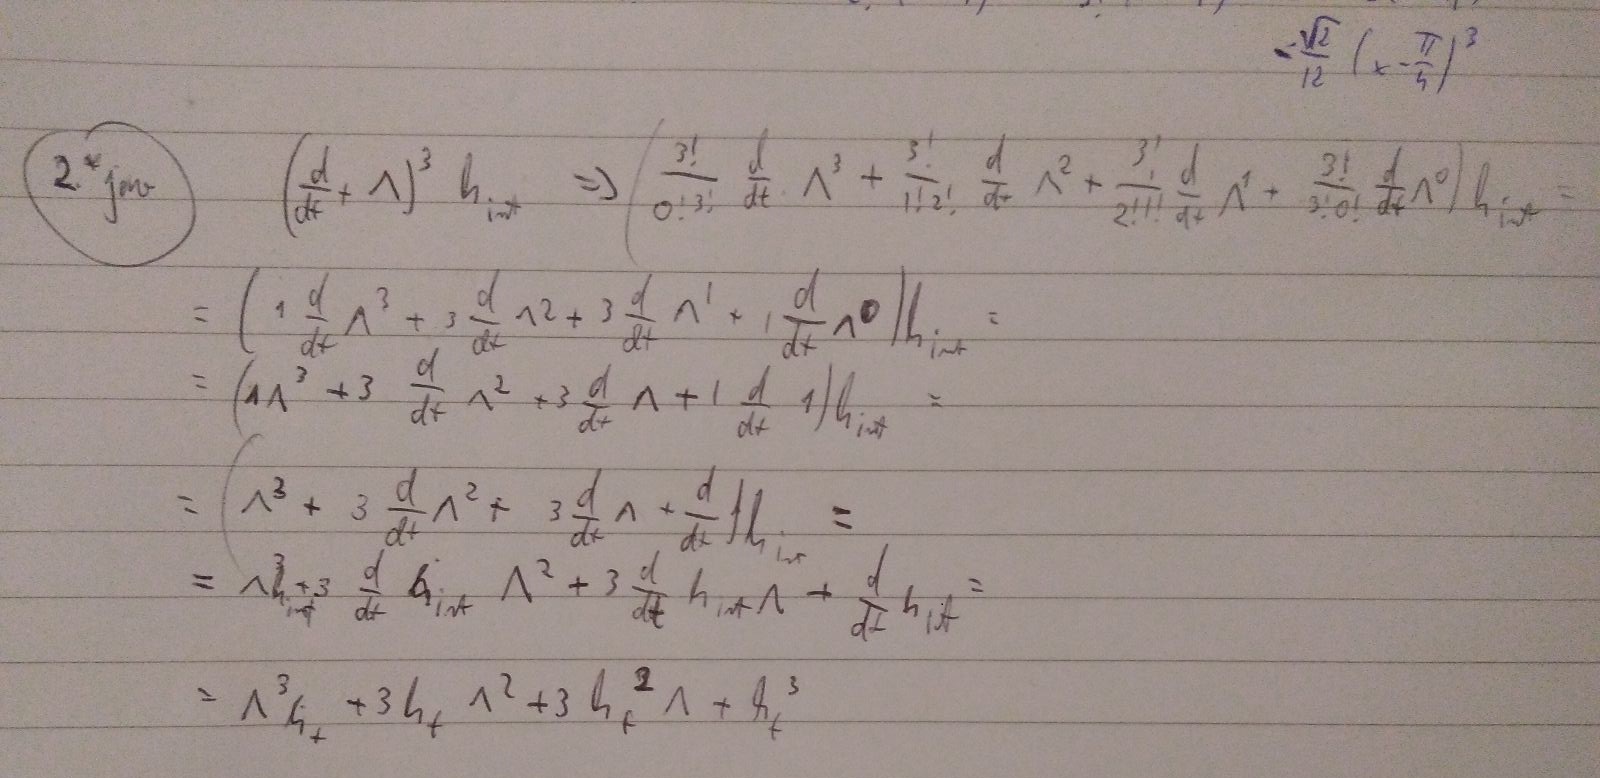 -√2/12 (x - π/4)^3
2.* (d/dt + Λ)^3 h_int => (3!/0!3! d/dt Λ^3 + 3!/1!2! d/dt Λ^2 + 3!/2!1! d/dt Λ^1 + 3!/3!0! d/dt Λ^0) h_int =
= (1 d/dt Λ^3 + 3 d/dt Λ^2 + 3 d/dt Λ^1 + 1 d/dt Λ^0) h_int =
= (1Λ^3 + 3 d/dt Λ^2 + 3 d/dt Λ + 1 d/dt 1) h_int =
= (Λ^3 + 3 d/dt Λ^2 + 3 d/dt Λ + d/dt) h_int =
= Λ^3 h_int + 3 d/dt h_int Λ^2 + 3 d/dt h_int Λ + d/dt h_int =
= Λ^3 h_t + 3 h_t Λ^2 + 3 h_t^2 Λ + h_t^3